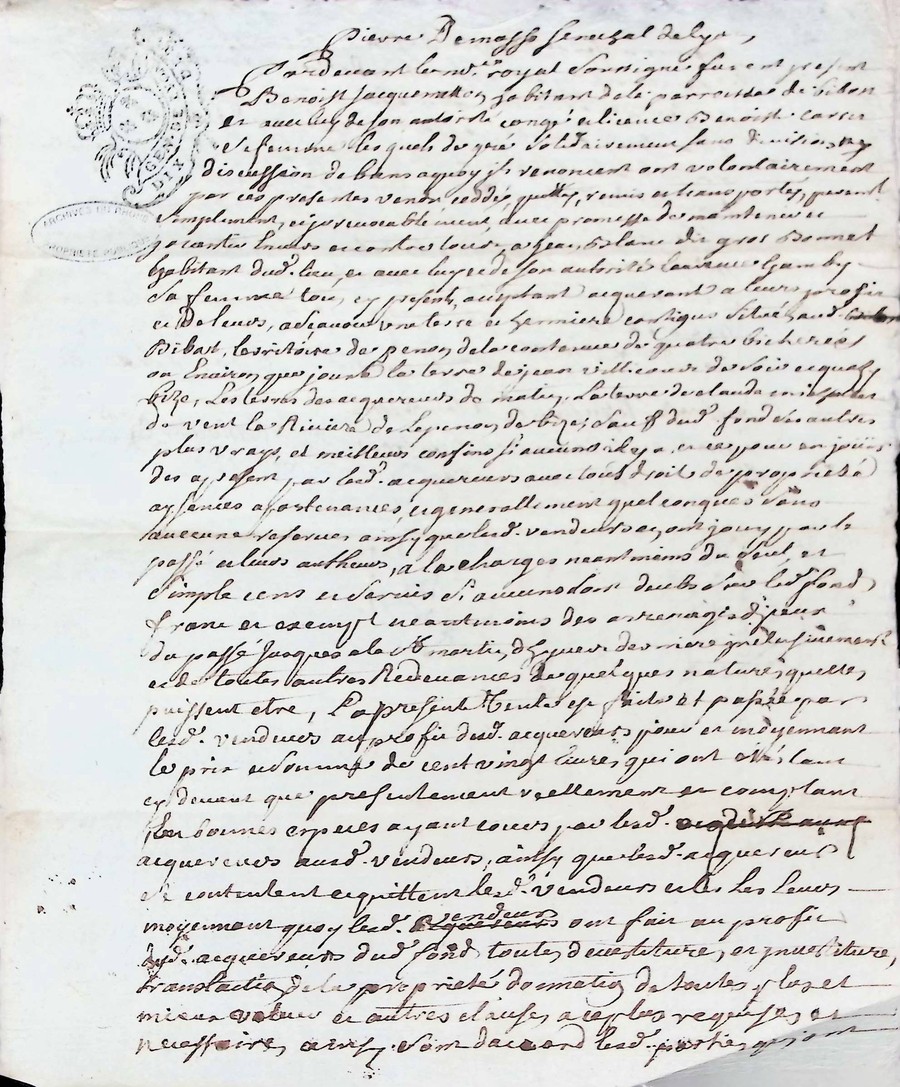 Pierre De masso Seneschal de lyon
Pardevant le no.re royal Soussigné furent present
Benoist Jacquemetton habitant de la parroisse de bibost
et avec luy de son autorité congé et licence Benoiste
Sa femme lesquels de gré Solidairement sans division ny
discussion de biens aquoy ils renoncent ont volontairement
par ces presentes vendu ceddé, quitté, remis et transportés, purement
Simplement, et irrevocablement, avec promesse de maintenir et
garentir Envers et contre tous, a Jean Blanc dit gros Bonnet
habitant dud. lieu, et avec luy et de son autorité Laurence
Sa femme tous cy presents, acceptant acquerant a leurs profit
et De leurs, a Scavoir une terre et hermiere contigus Situés aud.
Bibost, territoire de penon de la contenue de quatre bicherées
ou Environ, que joint la terre de jean de Soir et quasy
bize, Les terres des acquereurs de matin, La terre de claude
de vent la Riviere de Lepenon de bize, Sauf dud. fond Ses autres
plus vrays, et meilleurs confins Si aucuns il y a, et ce pour en jouir
des apresent par lesd. acquereurs avec tous droit de propriété
aysances apartenances et generallement quelconques Sans
aucune reserves ainsy que lesd. vendeurs en ont jouy par le
passé et leurs autheurs, a la charges neantmoins du Seul, et
Simple cens et Servis Si aucuns dont deubs Sur led. fond
franc et exempt neantmoins des arrerages d'jceux
du passé Jusques a la St martin, d'hyvert derniere inclusivement
et de toutes autres Redevances de quelques natures quelles
puissent etre, La presente Vente est faite et passée par
lesd. vendeurs au profit dud. acquereurs pour et moyennant
le prix et Somme de cent vingt livres qui ont etés tant
cy devant que presentement reellement et comptant
En bonnes especes ayant cours par lesd.
acquereurs ausd. vendeurs, ainsy que lesd. acquereurs
Se contentent et quittent lesd. vendeurs et les Leurs
moyennant quoy lesd. vendeurs ont fait au profit
desd. acquereurs dud. fond toutes devestiture, et investiture,
translation de la propriété donnation de toutes plus et
mieux value et autres clauses a ce plus requises, et
necessaires, ainsy Sont d'accord lesd. parties qui ont
GEN. DE LYON
DIX
ARCHIVES DU RHONE
PROPRIETE PUBLIQUE